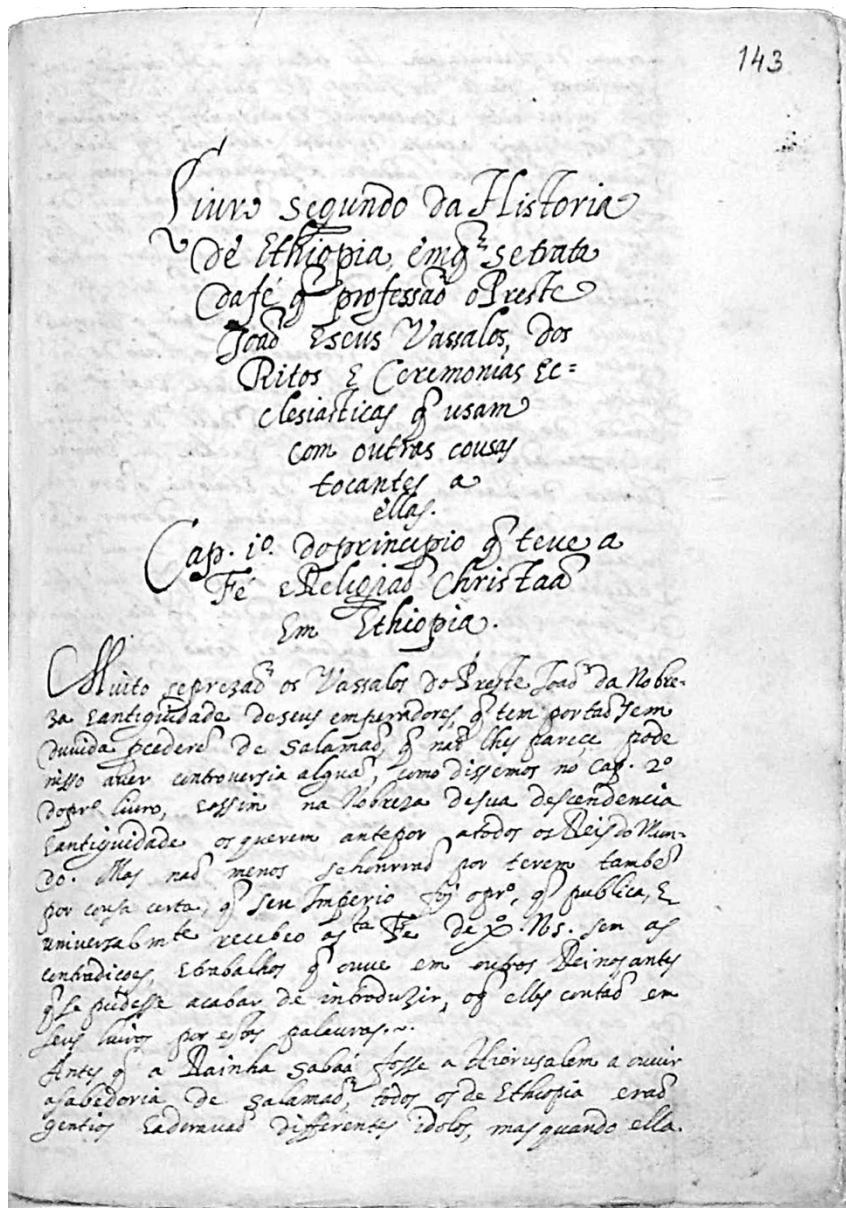 143
Livro segundo da Historia
de Ethiopia, em q̃ se trata
da fé q̃ professaõ o Preste
Joaõ E seus Vassalos, dos
Ritos E Ceremonias Ec=
clesiasticas q̃ usam
com outras cousas
tocantes a
ellas.
Cap. 1º. do principio q̃ teve a
Fé e Religiaõ Christaã
Em Ethiopia.
Muito se prezaõ os Vassalos do Preste Joaõ da Nobre-
za E antiguidade de seus emperadores, q̃ tem por taõ sem
duvida pcederẽ de Salamaõ, q̃ naõ lhes parece pode
nisso aver controversia algũa, como dissemos no Cap. 2º
do prº livro, E assim na Nobreza de sua descendencia
E antiguidade os querem antepor a todos os Reis do Mun-
do. Mas naõ menos se honrraõ por terem tambẽ
por cousa certa, q̃ seu Imperio foj o prº, q̃ publica, E
universalmte recebeo a sta Fé de Xº. N. S. sem as
contradições, E trabalhos q̃ ouve em outros Reinos antes
q̃ se pudesse acabar de introduzir, o q̃ elles contaõ em
seus livros por estas palavras.~
Antes q̃ a Rainha Sabaá fosse a Hierusalem a ouvir
a sabedoria de Salamaõ, todos os de Ethiopia eraõ
gentios E adoravaõ differentes idolos, mas quando ella.